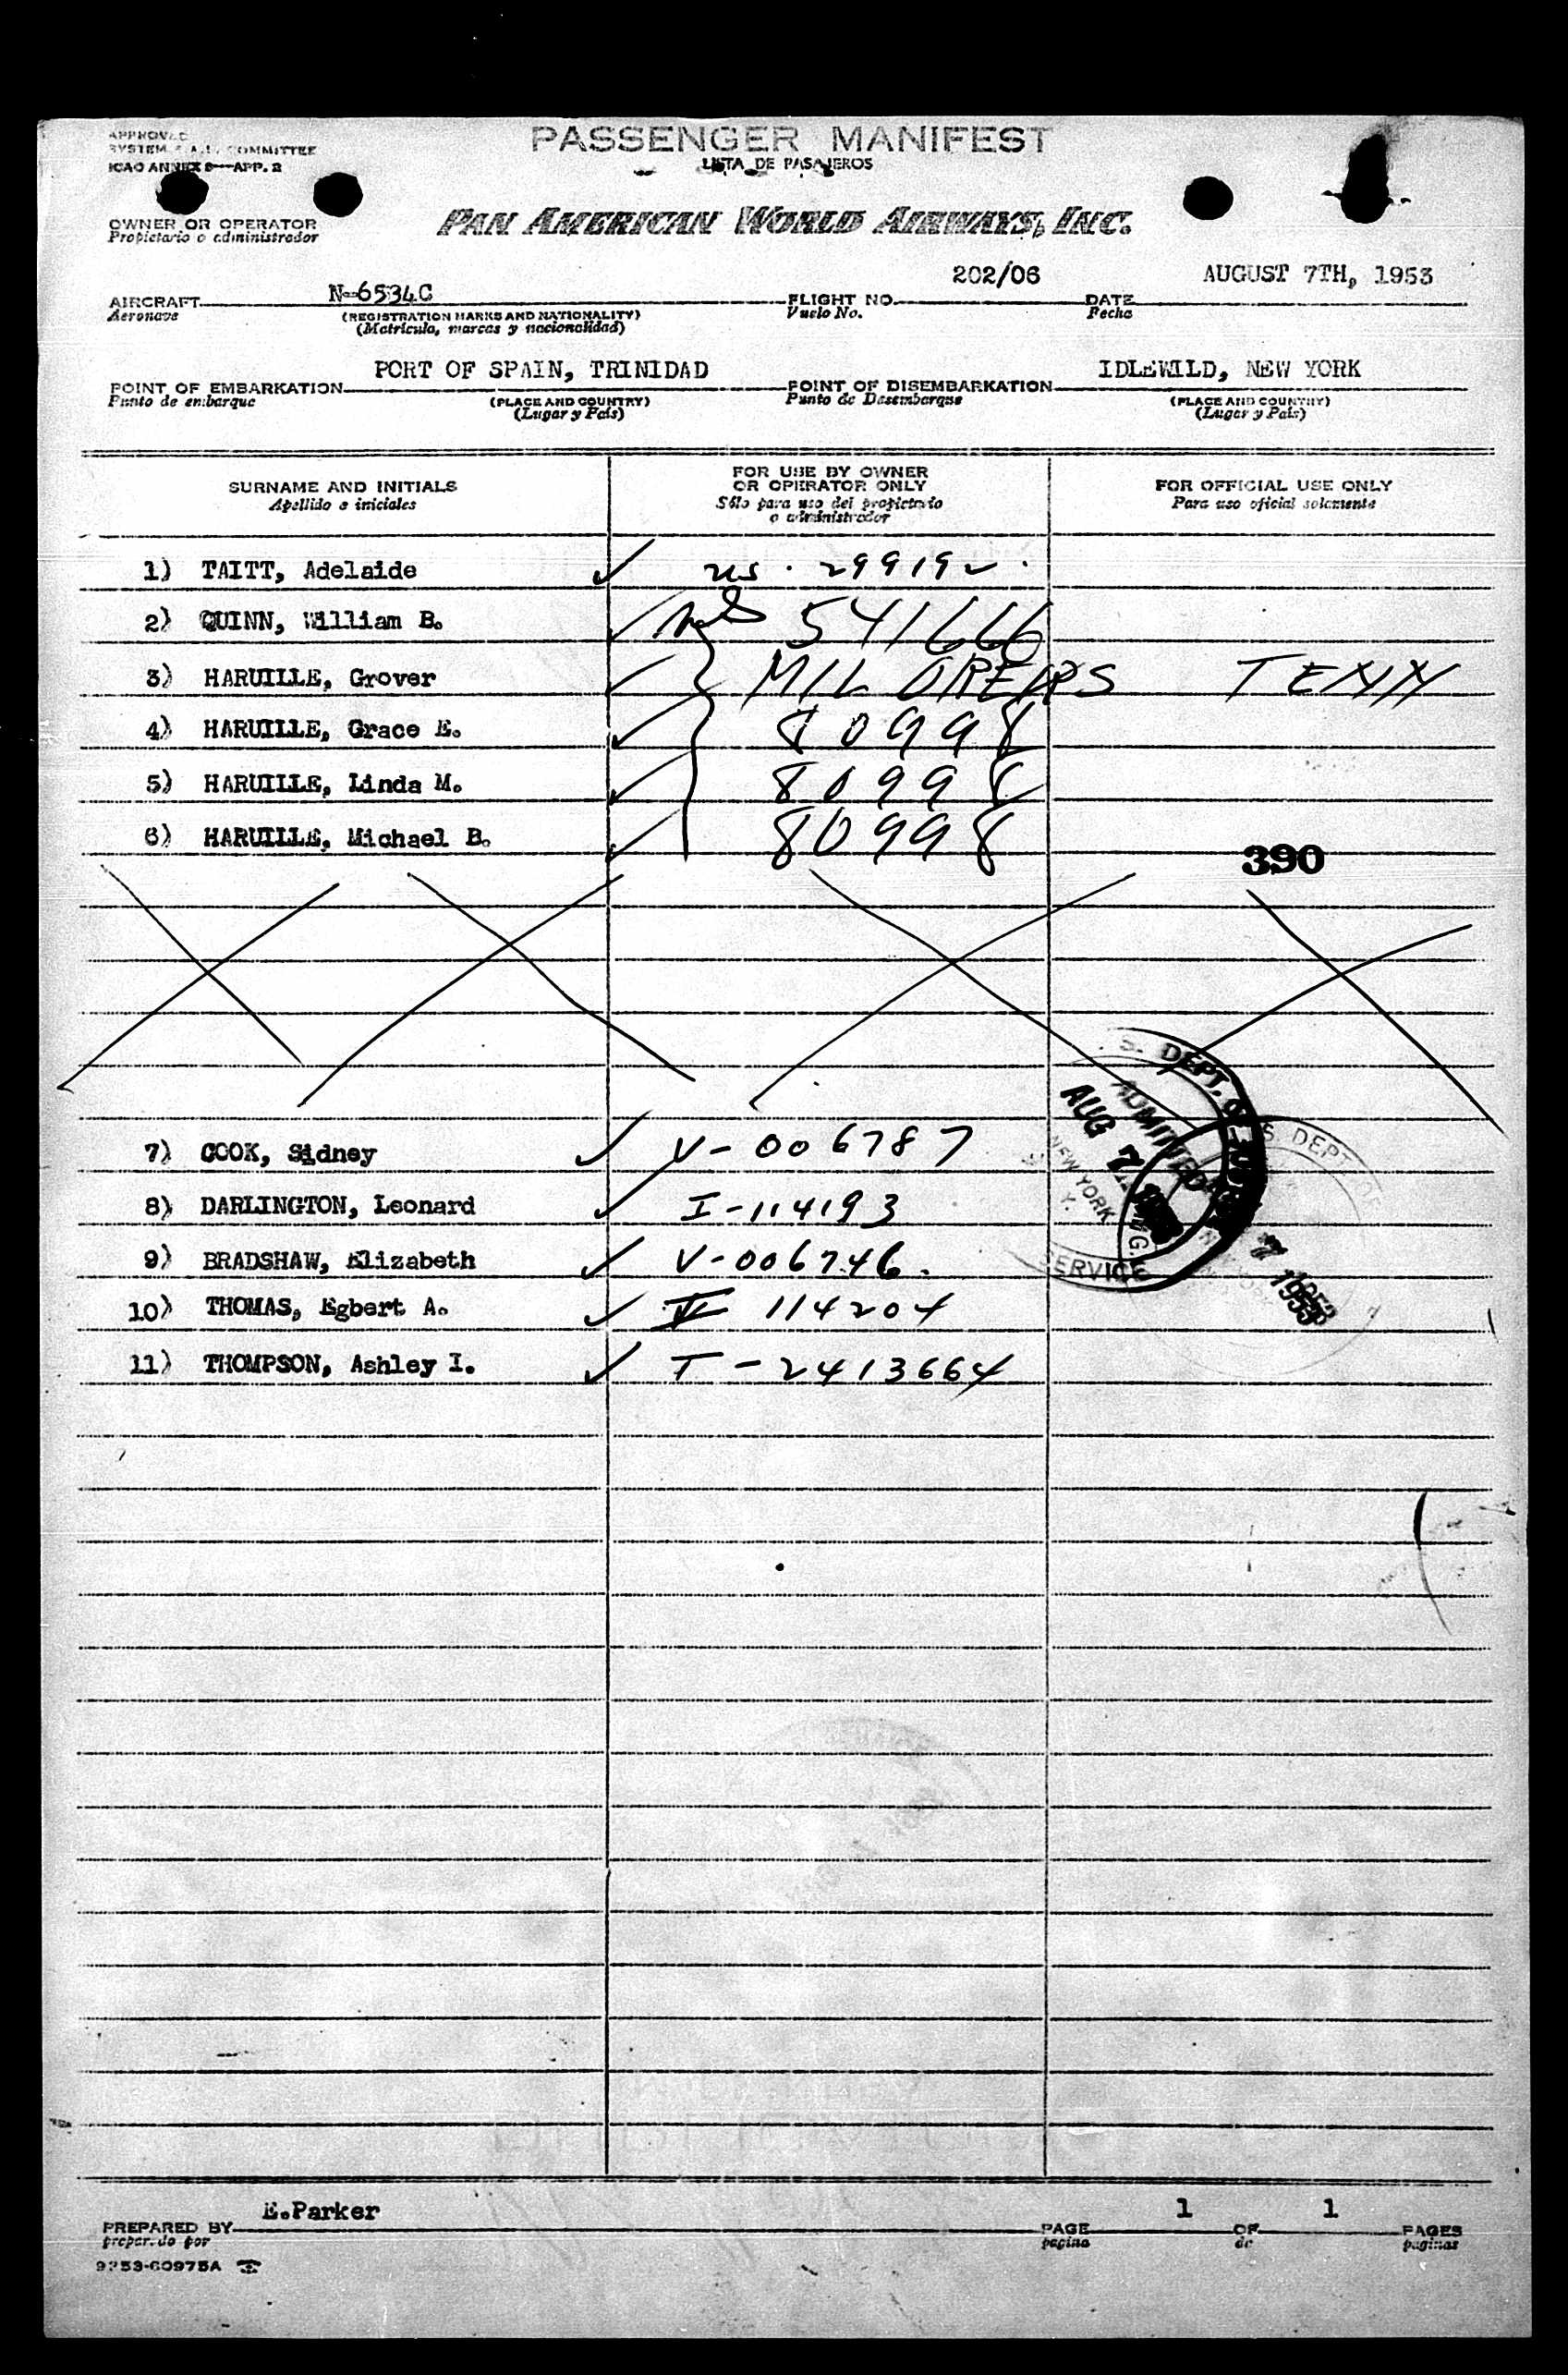 APPROVED
SYSTEM F.A.L. COMMITTEE
ICAO ANNEX 9—APP. 2
PASSENGER MANIFEST
LISTA DE PASAJEROS
OWNER OR OPERATOR
Propietario o administrador
PAN AMERICAN WORLD AIRWAYS, INC.
AIRCRAFT N-6534C FLIGHT NO. 202/06 DATE AUGUST 7TH, 1953
Aeronave (REGISTRATION MARKS AND NATIONALITY) Vuelo No. Fecha
(Matrícula, marcas y nacionalidad)
POINT OF EMBARKATION PORT OF SPAIN, TRINIDAD POINT OF DISEMBARKATION IDLEWILD, NEW YORK
Punto de embarque (PLACE AND COUNTRY) Punto de Desembarque (PLACE AND COUNTRY)
(Lugar y País) (Lugar y País)
SURNAME AND INITIALS FOR USE BY OWNER OR OPERATOR ONLY FOR OFFICIAL USE ONLY
Apellido e iniciales Sólo para uso del propietario o administrador Para uso oficial solamente
1) TAITT, Adelaide ✓ us. 299192.
2) QUINN, William B. ✓ 541666
3) HARUILLE, Grover ✓ MIL ORDERS TENN
4) HARUILLE, Grace E. ✓ 80998
5) HARUILLE, Linda M. ✓ 80998
6) HARUILLE, Michael B. ✓ 80998
390
7) COOK, Sidney ✓ V-006787
8) DARLINGTON, Leonard ✓ I-114193
9) BRADSHAW, Elizabeth ✓ V-006746.
10) THOMAS, Egbert A. ✓ 114204
11) THOMPSON, Ashley I. ✓ T-2413664
S. DEPT. OF
ADMITTED
AUG 7
NEW YORK
SERVICE
S. DEPT OF
7 1953
E.Parker 1 1
PREPARED BY PAGE OF PAGES
preparado por pagina de paginas
9253-60975A